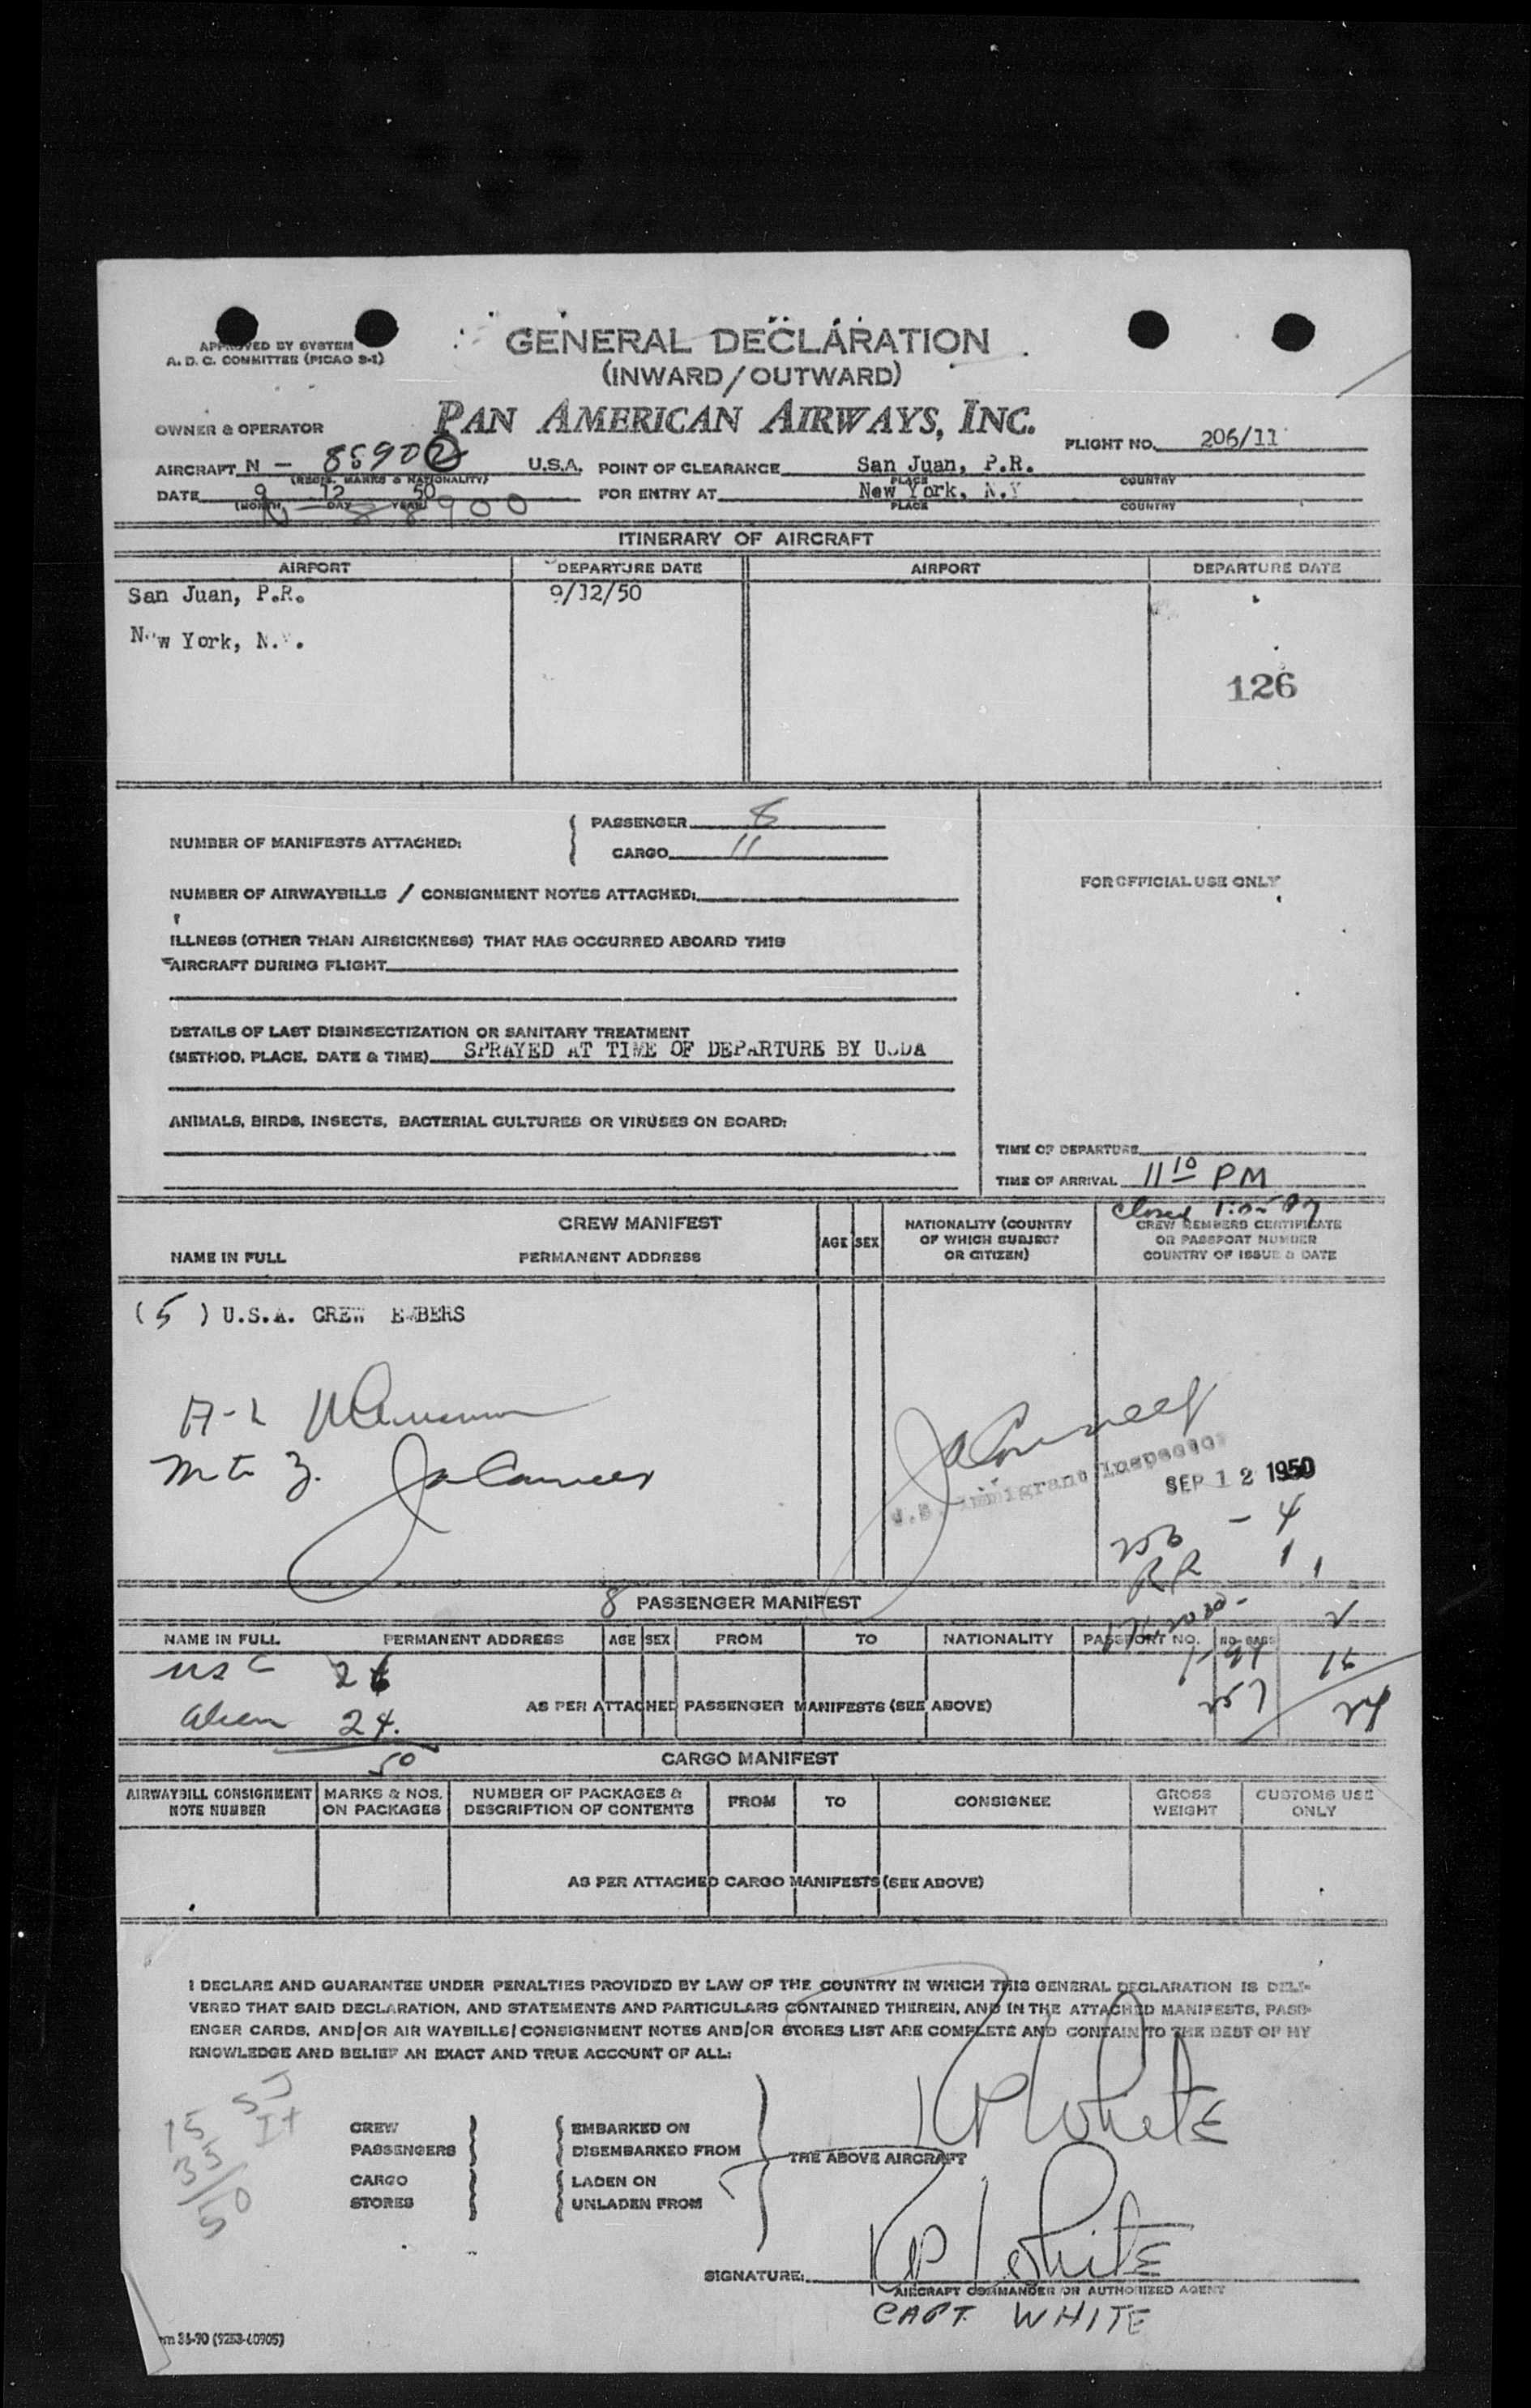 APPROVED BY SYSTEM
A. D. C. COMMITTEE (PICAO 9-1)
GENERAL DECLARATION
(INWARD/OUTWARD)
OWNER & OPERATOR
PAN AMERICAN AIRWAYS, INC.
FLIGHT NO. 206/11
AIRCRAFT N - 88902 U.S.A. POINT OF CLEARANCE San Juan, P.R.
(REGIS. MARKS & NATIONALITY) PLACE COUNTRY
DATE 9 12 50 FOR ENTRY AT New York, N.Y
(MONTH DAY YEAR) PLACE COUNTRY
N - 88900
ITINERARY OF AIRCRAFT
AIRPORT DEPARTURE DATE AIRPORT DEPARTURE DATE
San Juan, P.R. 9/12/50
New York, N.Y.
126
NUMBER OF MANIFESTS ATTACHED: PASSENGER 8
CARGO 11
FOR OFFICIAL USE ONLY
NUMBER OF AIRWAYBILLS / CONSIGNMENT NOTES ATTACHED:
ILLNESS (OTHER THAN AIRSICKNESS) THAT HAS OCCURRED ABOARD THIS
AIRCRAFT DURING FLIGHT
DETAILS OF LAST DISINSECTIZATION OR SANITARY TREATMENT
(METHOD, PLACE, DATE & TIME) SPRAYED AT TIME OF DEPARTURE BY USDA
ANIMALS, BIRDS, INSECTS, BACTERIAL CULTURES OR VIRUSES ON BOARD:
TIME OF DEPARTURE
TIME OF ARRIVAL 11 10 PM
Closed
CREW MANIFEST
NAME IN FULL PERMANENT ADDRESS AGE SEX NATIONALITY (COUNTRY OF WHICH SUBJECT OR CITIZEN) CREW MEMBERS CERTIFICATE OR PASSPORT NUMBER COUNTRY OF ISSUE & DATE
(5) U.S.A. CREW EMBERS
U.S. Immigrant Inspector
SEP 12 1950
256 - 4
RR 1 1
8 PASSENGER MANIFEST
2
NAME IN FULL PERMANENT ADDRESS AGE SEX FROM TO NATIONALITY PASSPORT NO. NO. BAGS
USC 26
15
257
AS PER ATTACHED PASSENGER MANIFESTS (SEE ABOVE)
Alien 24.
24
50
CARGO MANIFEST
AIRWAYBILL CONSIGNMENT NOTE NUMBER MARKS & NOS. ON PACKAGES NUMBER OF PACKAGES & DESCRIPTION OF CONTENTS FROM TO CONSIGNEE GROSS WEIGHT CUSTOMS USE ONLY
AS PER ATTACHED CARGO MANIFESTS (SEE ABOVE)
I DECLARE AND GUARANTEE UNDER PENALTIES PROVIDED BY LAW OF THE COUNTRY IN WHICH THIS GENERAL DECLARATION IS DELI-
VERED THAT SAID DECLARATION, AND STATEMENTS AND PARTICULARS CONTAINED THEREIN, AND IN THE ATTACHED MANIFESTS, PASS-
ENGER CARDS, AND/OR AIR WAYBILLS/CONSIGNMENT NOTES AND/OR STORES LIST ARE COMPLETE AND CONTAIN TO THE BEST OF MY
KNOWLEDGE AND BELIEF AN EXACT AND TRUE ACCOUNT OF ALL:
15 SJ
35 It
50
KP White
CREW EMBARKED ON
PASSENGERS DISEMBARKED FROM
THE ABOVE AIRCRAFT
CARGO LADEN ON
STORES UNLADEN FROM
SIGNATURE: KP White
AIRCRAFT COMMANDER OR AUTHORIZED AGENT
CAPT. WHITE
rm 36-90 (9253-40905)